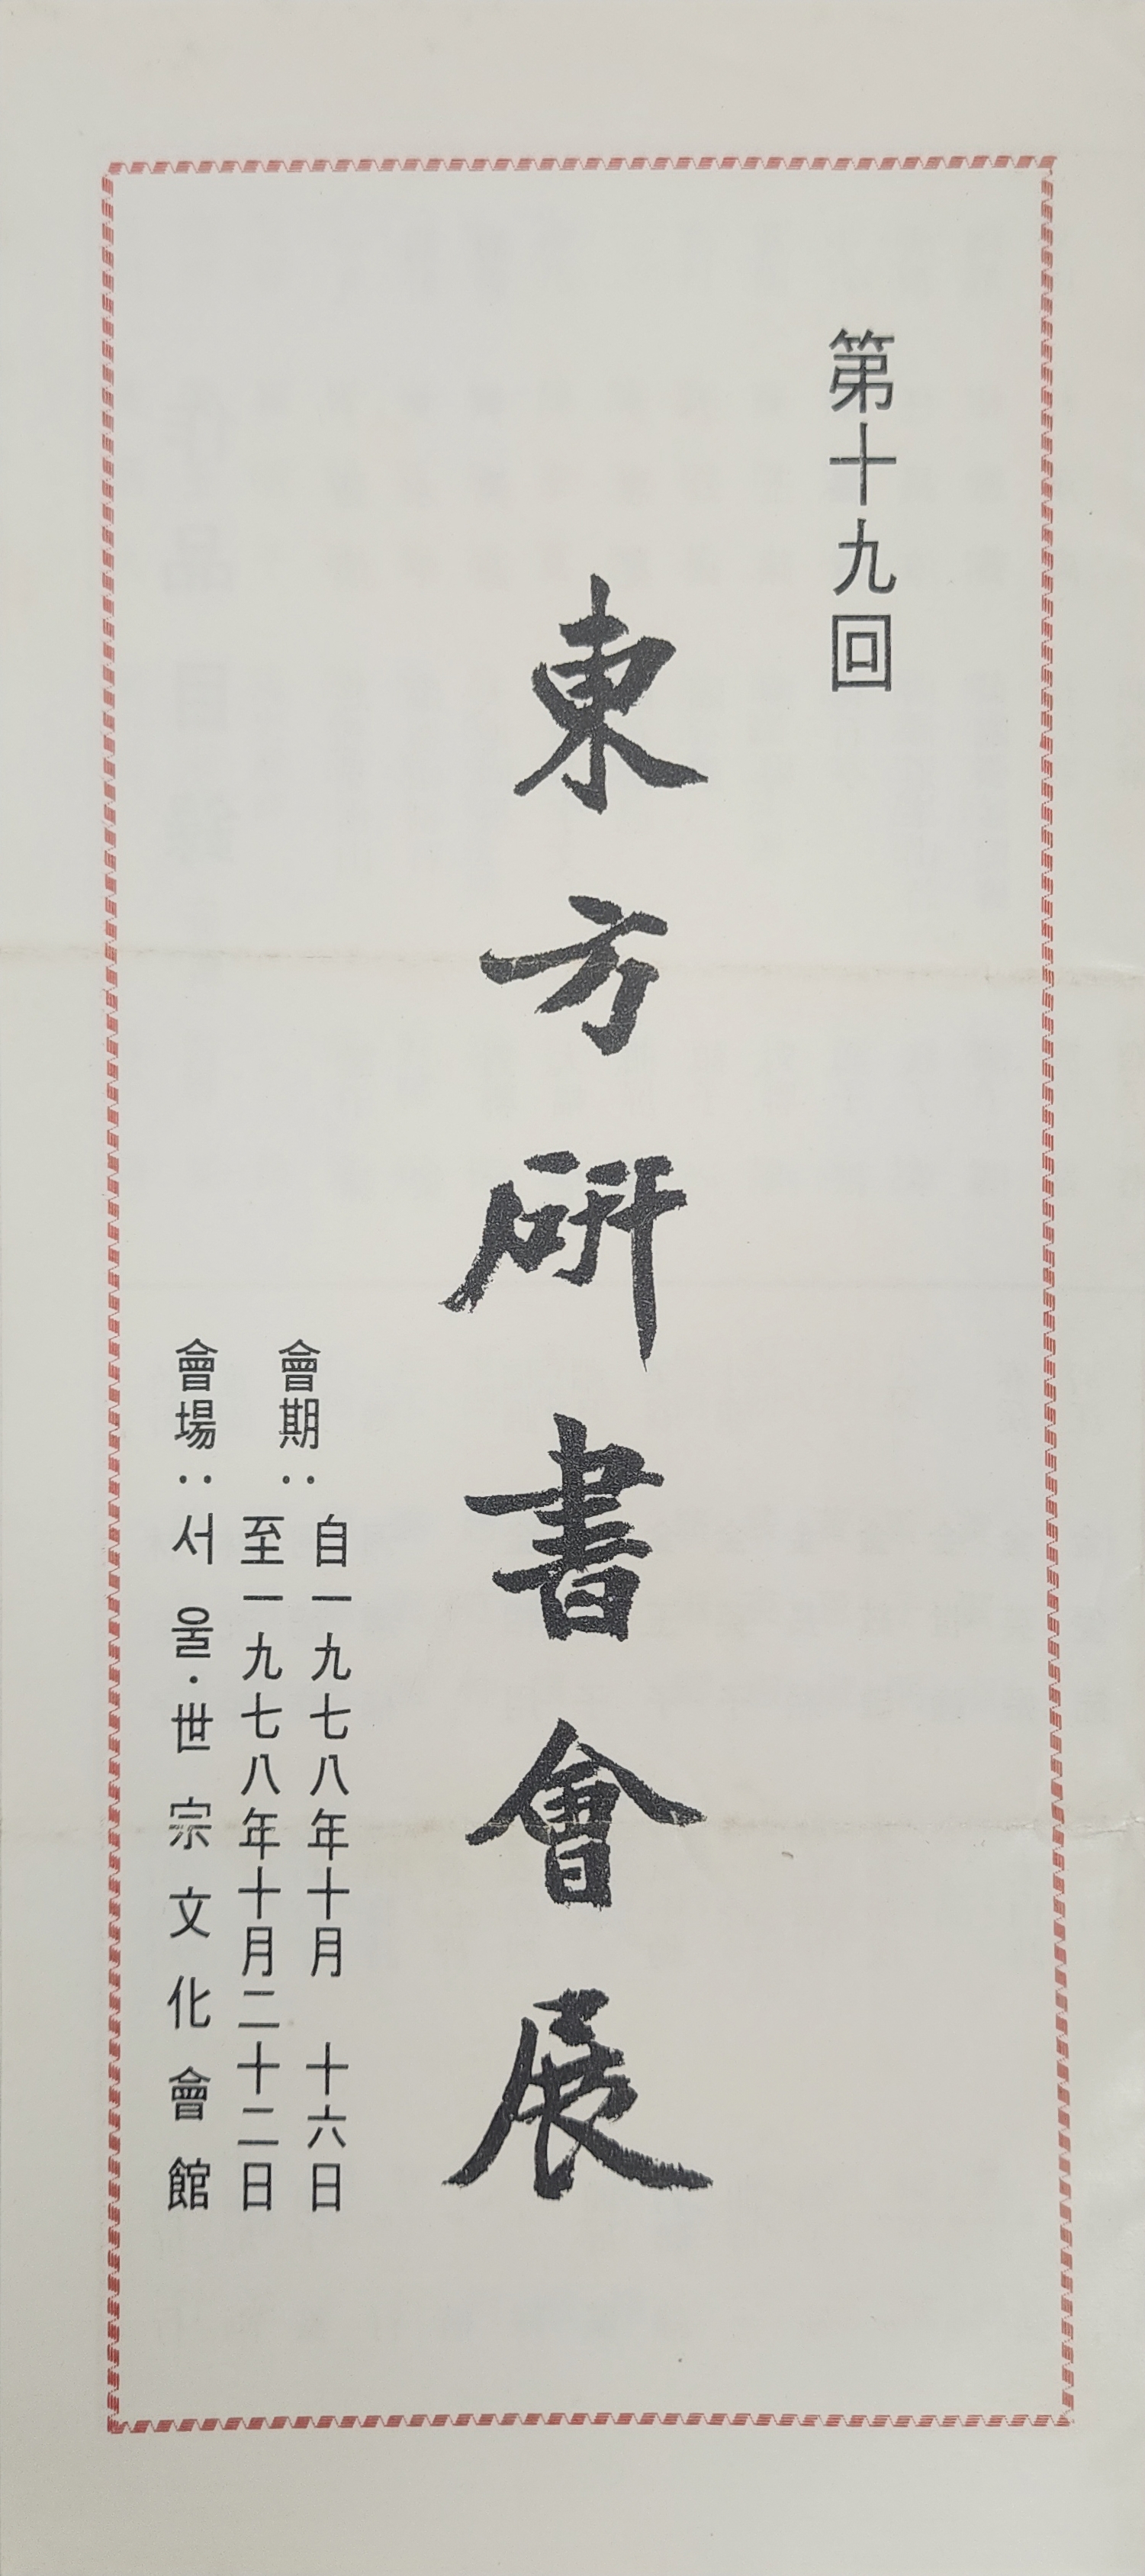 第十九回
東方硏書會展
會期：自一九七八年十月 十六日
至一九七八年十月二十二日
會場：서울·世宗文化會館